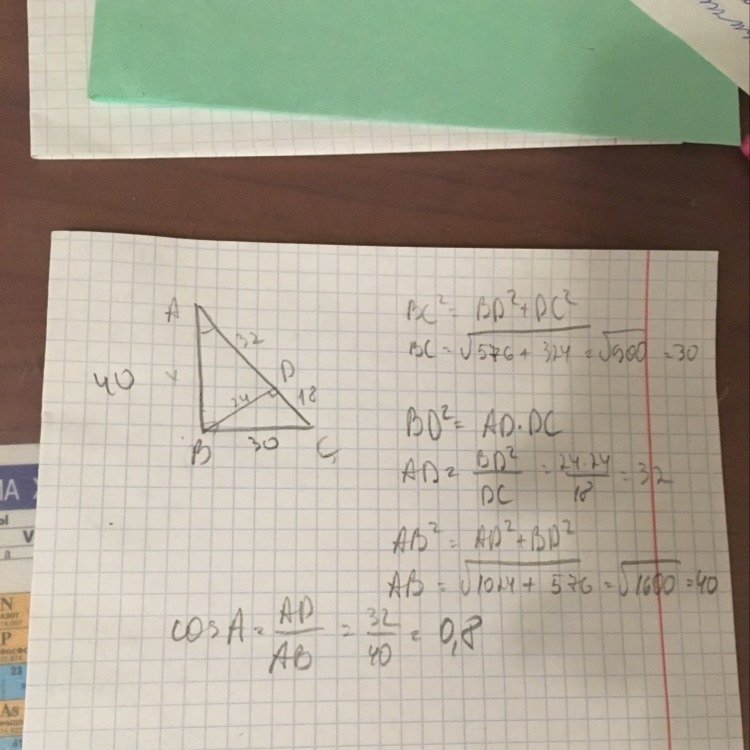 A
32
40
D
24
18
B
30
C
BC² = BD² + DC²
BC = √576 + 324 = √900 = 30
BD² = AD · DC
AD = BD²/DC = 24·24/18 = 32
AB² = AD² + BD²
AB = √1024 + 576 = √1600 = 40
cos A = AD/AB = 32/40 = 0,8
N
P
23
As